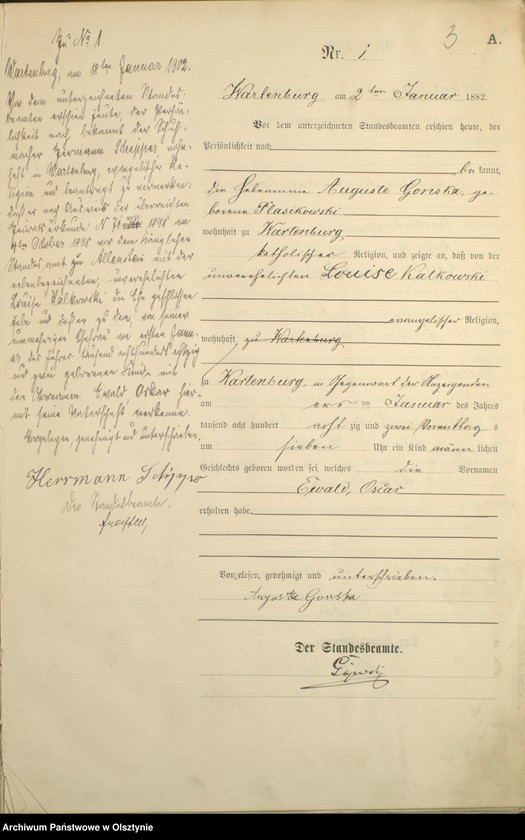 Zu No 1
Wartenburg, am 18ten Januar 1902.
Vor dem unterzeichneten Standes-
beamten erschien heute, der Persön-
lichkeit nach, bekannt der Schuh-
macher Hermann wohn-
haft in Wartenburg, evangelischer Re-
ligion und beantragt zu vermerken:
daß er nach Ausweis der überreichten
Heiratsurkunde N 1898 am
4ten Oktober 1898 vor dem Königlichen
Standesamt zu Allenstein mit der
nebenbezeichneten, unverehelichten
Louise Kalkowski die Ehe geschlossen
habe und daß er zu dem, von seiner
nunmehrigen Ehefrau am ersten Janu-
ar des Jahres tausend achthundert achtzig
und zwei geborenen Kinde mit
den Vornamen Ewald Oskar hier-
mit seine Vaterschaft anerkenne.
Vorgelesen, genehmigt und unterschrieben.
Herrmann
Der Standesbeamte.
3
A.
Nr. 1
Wartenburg am 2ten Januar 1882.
Vor dem unterzeichneten Standesbeamten erschien heute, der
Persönlichkeit nach
bekannt,
die Hebeamme Auguste Gonska, ge-
borene Plasikowski
wohnhaft zu Wartenburg
katholischer Religion, und zeigte an, daß von der
unverehelichten Louise Kalkowski
evangelischer Religion,
wohnhaft zu Wartenburg
zu Wartenburg, in Gegenwart der Anzeigenden
am ersten Januar des Jahres
tausend acht hundert achtzig und zwei Vormittags
um sieben Uhr ein Kind männlichen
Geschlechts geboren worden sei, welches die Vornamen
Ewald, Oscar
erhalten habe.
Vorgelesen, genehmigt und unterschrieben.
Auguste Gonska
Der Standesbeamte.
Archiwum Państwowe w Olsztynie